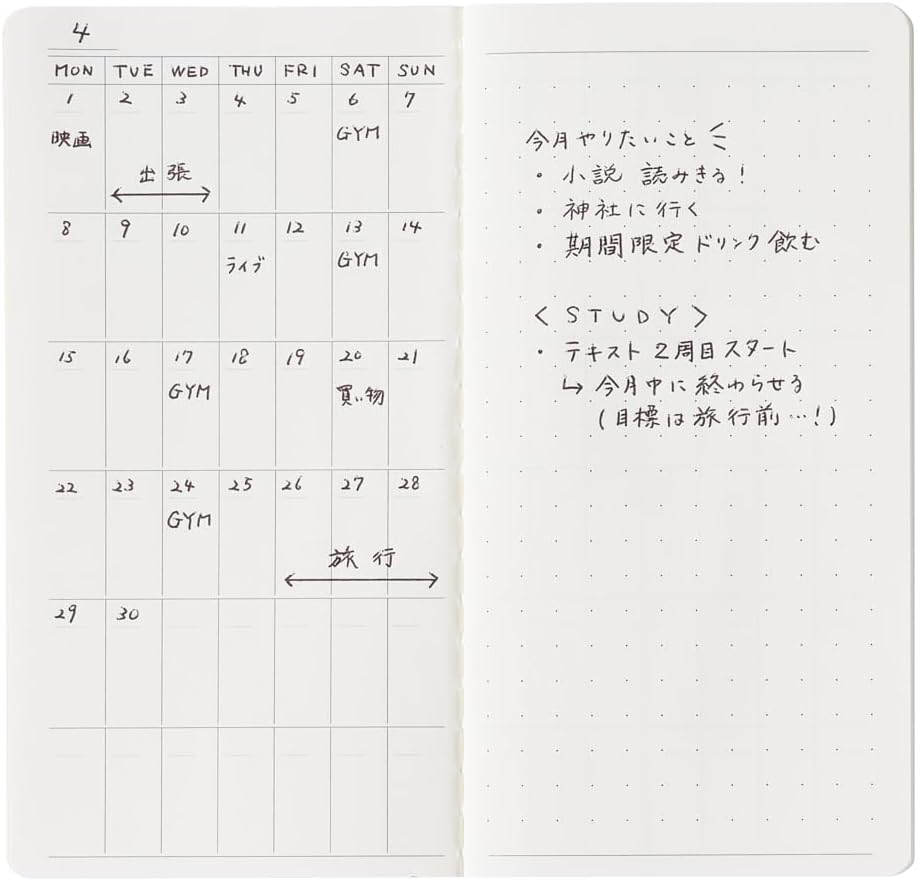 4
MON TUE WED THU FRI SAT SUN
1 2 3 4 5 6 7
映画 GYM
出張
8 9 10 11 12 13 14
ライブ GYM
15 16 17 18 19 20 21
GYM 買い物
22 23 24 25 26 27 28
GYM
旅行
29 30
今月やりたいこと
・小説 読みきる!
・神社に行く
・期間限定ドリンク飲む
<STUDY>
・テキスト2周目スタート
↳今月中に終わらせる
(目標は旅行前…!)